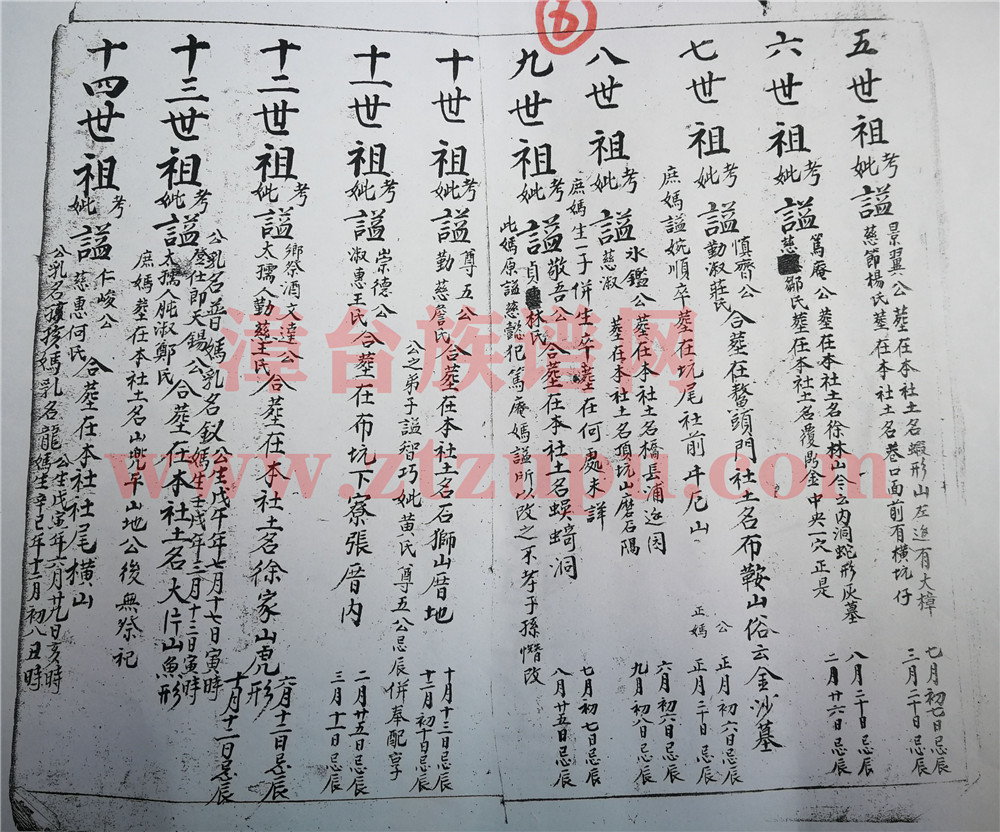 六
五世祖 考妣 謚 景翼公葬在本社土名蝦形山左邊有大樟 七月初七日忌辰
慈節楊氏葬在本社土名巷口面前有橫坑仔 三月二十日忌辰
六世祖 考妣 謚 篤庵公葬在本社土名徐林山公云內洞蛇形灰墓 八月二十日忌辰
慈 鄒氏葬在本社土名覆鼎金中央一穴正是 二月廿六日忌辰
七世祖 考妣 謚 慎齊公 勤淑莊氏 合葬在鰲頭門社土名布鞍山俗云金沙墓 公 正月初六日忌辰
正媽 正月二十日忌辰
庶媽謚婉順卒葬在坑尾社前 山 六月初六日忌辰
八世祖 考妣 謚 氷鑑公葬在本社土名橋長浦 九月初八日忌辰
慈淑 葬在本社土名頂坑山磨石隔 七月初七日忌辰
庶媽生一子併生卒葬在何處未詳
九世祖 考妣 謚 敬吾公 貞 林氏 合葬在本社土名蜈蜞洞 八月廿五日忌辰
此媽原謚慈懿犯篤庵媽謚所以改之不孝予孫愷改
十世祖 考妣 謚 尊五公 勤慈詹氏 合葬在本社土名石獅山厝地 十月十三日忌辰
十二月初十日忌辰
公之弟子謚智巧妣黃氏尊五公忌辰併奉配享
十一世祖 考妣 謚 崇德公 淑惠王氏 合葬在布坑下寮張厝內 二月廿五日忌辰
三月十一日忌辰
十二世祖 考妣 謚 鄉祭酒文達公 太孺人勤慈王氏 合葬在本社土名徐家山虎形 六月十二日忌辰
十月十一日忌辰
十三世祖 考妣 謚 登仕郎天錫公 太孺人肫淑鄭氏 合葬在本社土名大片山魚形
公乳名普媽乳名釵 公生戊午年七月十七日寅時
媽生壬戌年三月十三日寅時
庶媽葬在本社土名山兜平山地公後無祭祀
十四世祖 考妣 謚 仁峻公 慈惠何氏 合葬在本社社尾橫山
公乳名 媽乳名龍 公生戊寅年六月廿九日亥時
媽生辛巳年十二月初八丑時
漳台族谱网
www.ztzupu.com